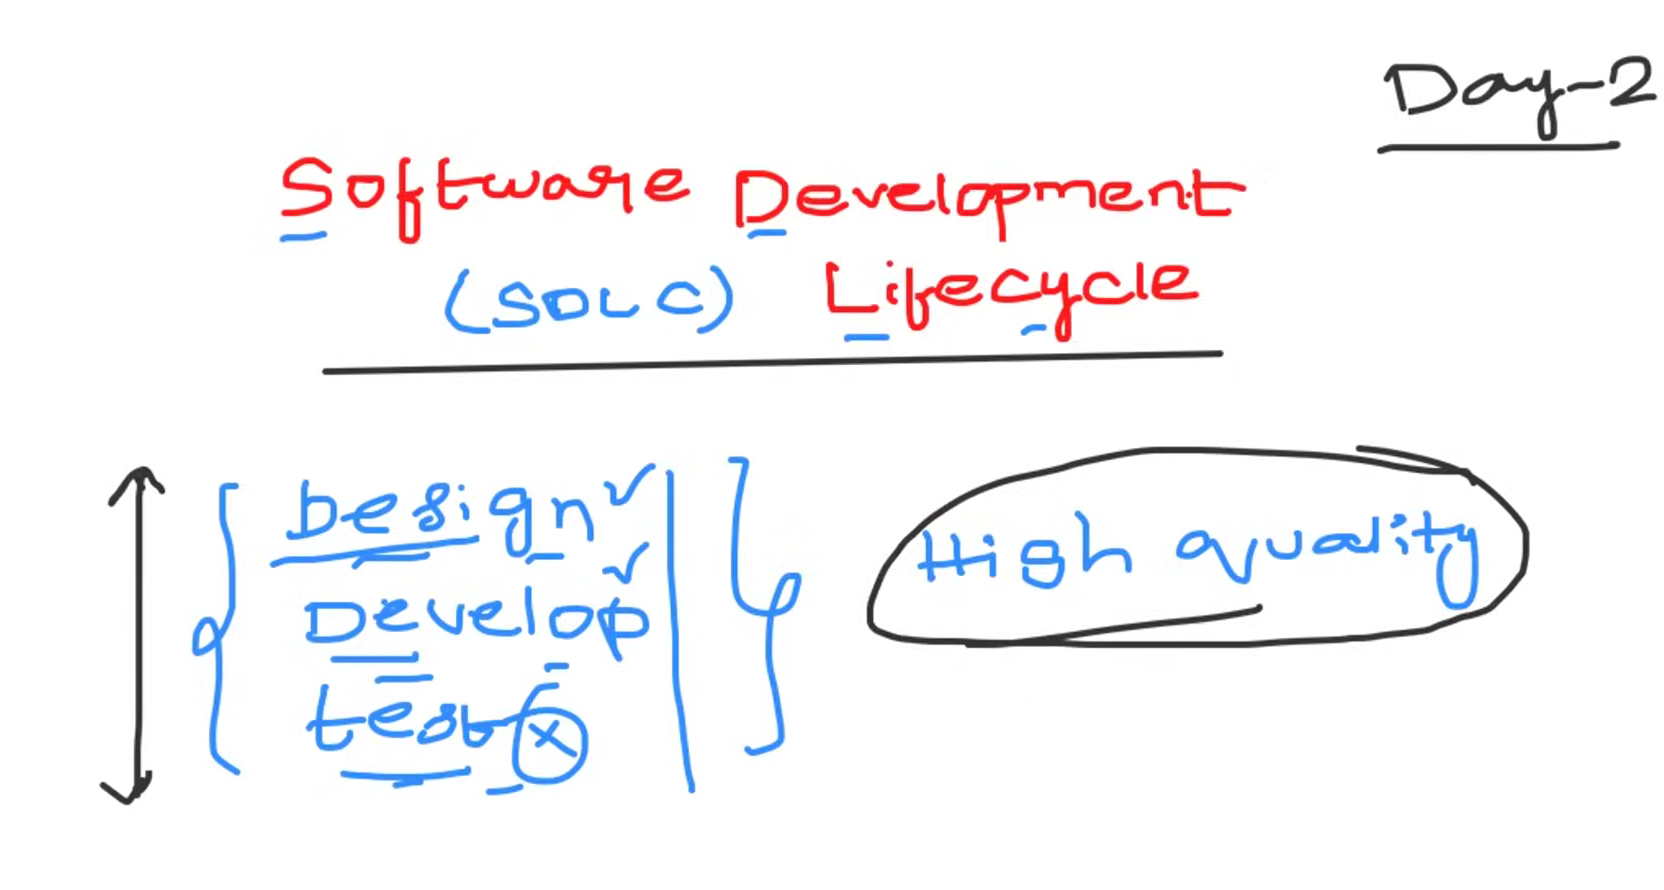 Day-2
Software Development
(SDLC) Lifecycle
Design ✓
Develop ✓
test x
High quality